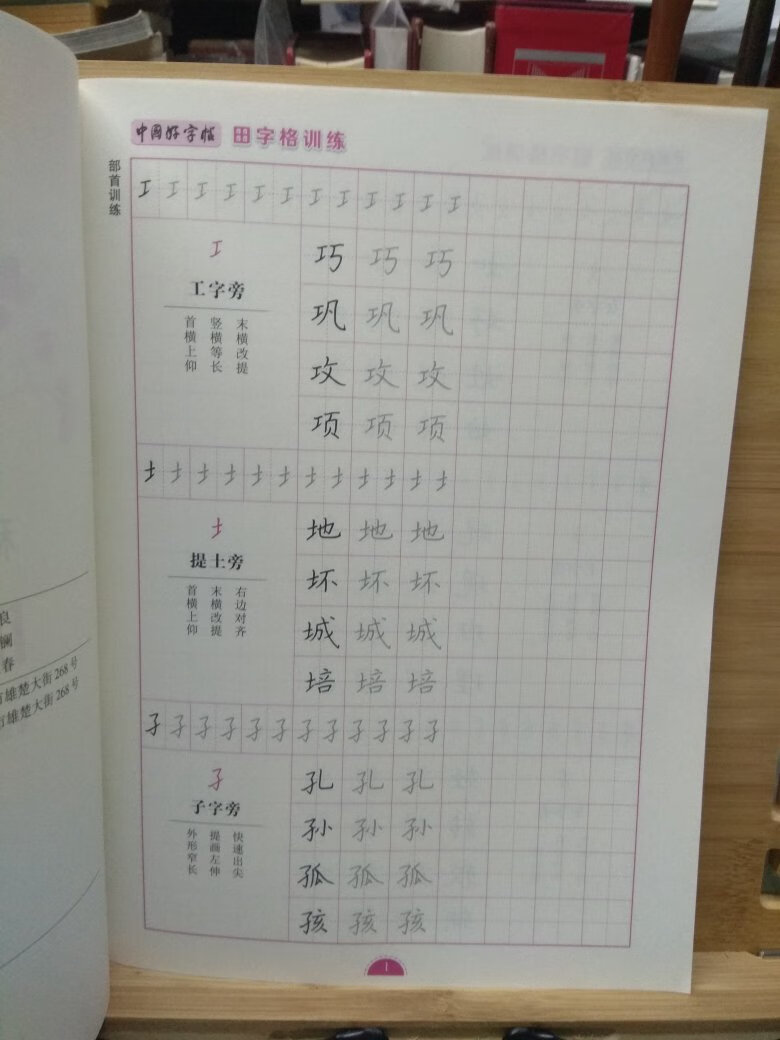 中国好字帖 田字格训练
部首训练
工 工 工 工 工 工 工 工 工 工 工 工
工
工字旁
首横上仰
竖横等长
末横改提
巧 巧 巧
巩 巩 巩
攻 攻 攻
项 项 项
土 土 土 土 土 土 土 土 土 土 土 土
土
提土旁
首横上仰
末横改提
右边对齐
地 地 地
坏 坏 坏
城 城 城
培 培 培
子 子 子 子 子 子 子 子 子 子 子 子
子
子字旁
外形窄长
提画左伸
快速出尖
孔 孔 孔
孙 孙 孙
孤 孤 孤
孩 孩 孩
1
良
春
市雄楚大街268号
市雄楚大街268号